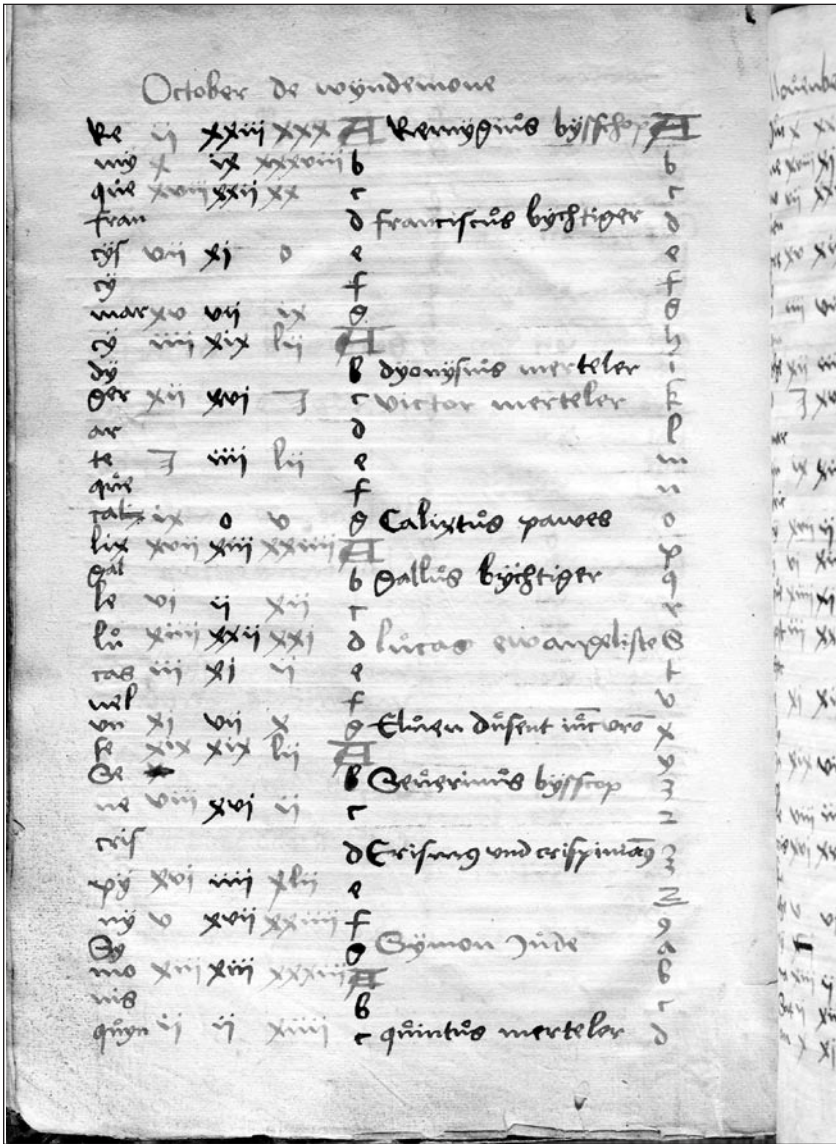 October de wyndemone
Re ii xxiii xxx A Remygiůs bysschop A
my x ix xxxviii b b
qůe xvii xxii xx c c
fran d franciscůs bychtiger d
cys vii xi o e e
cy f f
mar xv vii ix g g
cy iiii xix lii A h
dy b dyonysiůs merteler i
ger xii xvi J c victor merteler k
ar d l
te J iiii lii e m
qůe f n
cali ix o v g Calixtůs pawes o
lix xvii xiii xxiiii A p
gal b gallůs bychtiger q
le vi ii xii c r
lů xiiii xxii xxi d lůcas ewangeliste S
cas iii xi ii e t
wel f v
vn xi vii x g Elůen důsent x
te xix xix lii A y
Se b Seůerinůs bysscop
ne viii xvi ii c
cris d vnd
py xvi iiii xlii e
ny v xvii xxiiii f 9
Sy g Symon Jůde a
mo xiii xiii xxxiii A b
nis b c
qůyn ii ii xiiii c qůintůs merteler d